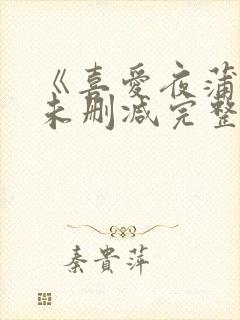 《喜爱夜蒲
未删减完整
秦贵萍